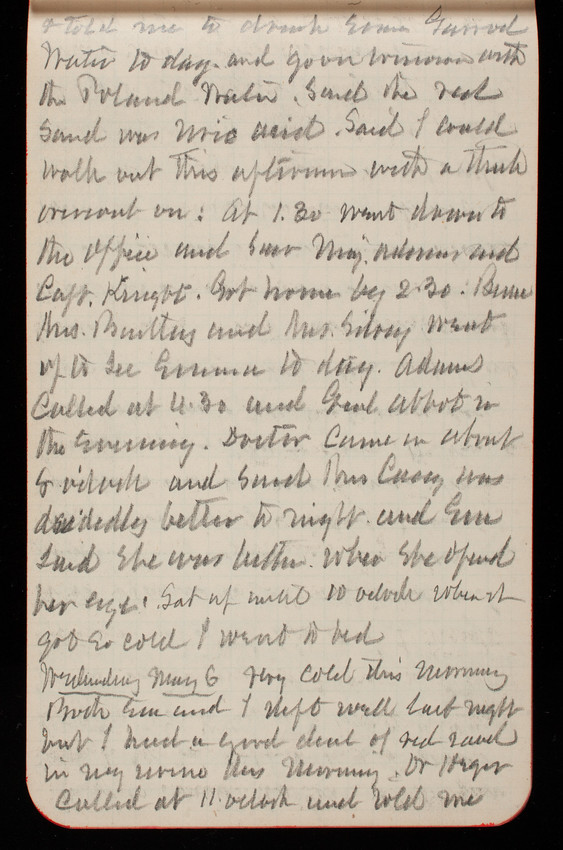 & told me to drink some
Water to day. and with
the Poland Water. Said the red
Sand was Uric acid. Said I could
walk out this afternoon with a thick
overcoat on: At 1.30 went down to
the office and Saw Maj. Adams and
Capt. Knight. Got home by 2.30:
Mrs. and Mrs. went
up to See Emma to day. Adams
Called at 4.30 and Genl Abbot in
the Evening. Doctor Came in about
o'clock and Said Mrs Casey was
decidedly better to night. and Em
Said She was better. When She opend
her eyes: Sat up until 10 o'clock when it
got so cold I went to bed
Wednesday May 6 very cold this morning
Both Em and I slept well last night
but I had a good deal of red sand
in my urine this Morning. Dr
Called at 11 o'clock and told me